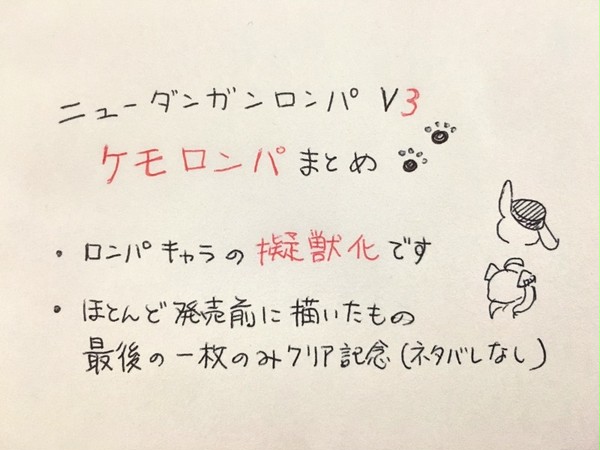 ニューダンガンロンパ V3
ケモロンパまとめ
・ロンパキャラの擬獣化です
・ほとんど発売前に描いたもの
最後の一枚のみクリア記念(ネタバレなし)